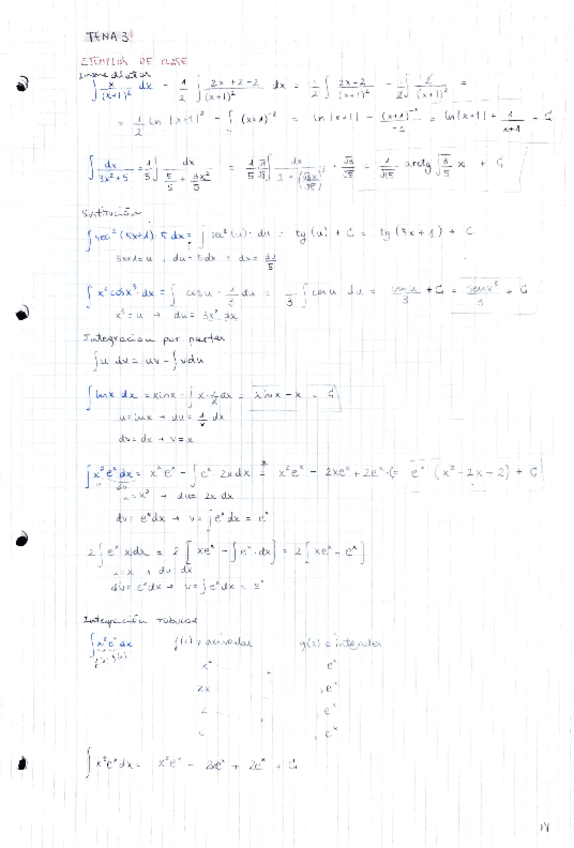 TEMA 3
EJEMPLOS DE CLASE
Inmediatas
∫ x/(x+1)² dx = 1/2 ∫ (2x+2-2)/(x+1)² dx = 1/2 ∫ (2x-2)/(x+1)² - 1/2 ∫ 2/(x+1)² =
= 1/2 ln |x+1|² - ∫ (x+1)⁻² = ln|x+1| - (x+1)⁻¹/-1 = ln|x+1| + 1/(x+1) + C
∫ dx/(3x²+5) = 1/5 ∫ dx/(5/5 + 3x²/5) = 1/5 √3/√3 ∫ dx/(1+(√3x/√5)²) · √5/√5 = 1/√15 arctg √3/5 x + C
Sustitución
∫ sec²(5x+1)·5dx = ∫ sec²(u)·du = tg(u) + C = tg(5x+1) + C
5x+1=u , du=5dx → dx = du/5
∫ x² cosx³·dx = ∫ cosu · 1/3 du = 1/3 ∫ cosu du = senu/3 + C = senx³/3 + C
x³=u → du= 3x² dx
Integración por partes
∫ u dv = uv - ∫ v du
∫ lnx dx = xlnx - ∫ x·1/x dx = xlnx - x + C
u=lnx → du= 1/x dx
dv=dx → v=x
∫ x²eˣdx = x²eˣ - ∫ eˣ 2xdx = x²eˣ - 2xeˣ + 2eˣ + C = eˣ (x²-2x-2) + C
dv
u=x² → du= 2x dx
dv= eˣdx → v= ∫ eˣdx = eˣ
2 ∫ eˣ xdx = 2 [xeˣ - ∫ eˣ·dx] = 2 [xeˣ - eˣ]
u=x → du=dx
dv= eˣdx → v= ∫ eˣdx = eˣ
Integración Tabular
∫ x²eˣdx f(x) y derivadas g(x) e integrales
f(x) g(x)
x² eˣ
2x eˣ
2 eˣ
0 eˣ
∫ x²eˣdx = x²eˣ - 2xeˣ + 2eˣ + C